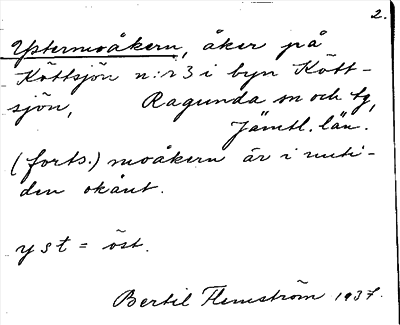 2.
Ystermoåkern, åker på
Köttsjön n:r 3 i byn Kött-
sjön, Ragunda sn och tg,
Jämtl. län.
(forts.) moåkern är i nuti-
den okänt.
yst = öst.
Bertil Flemström 1937.